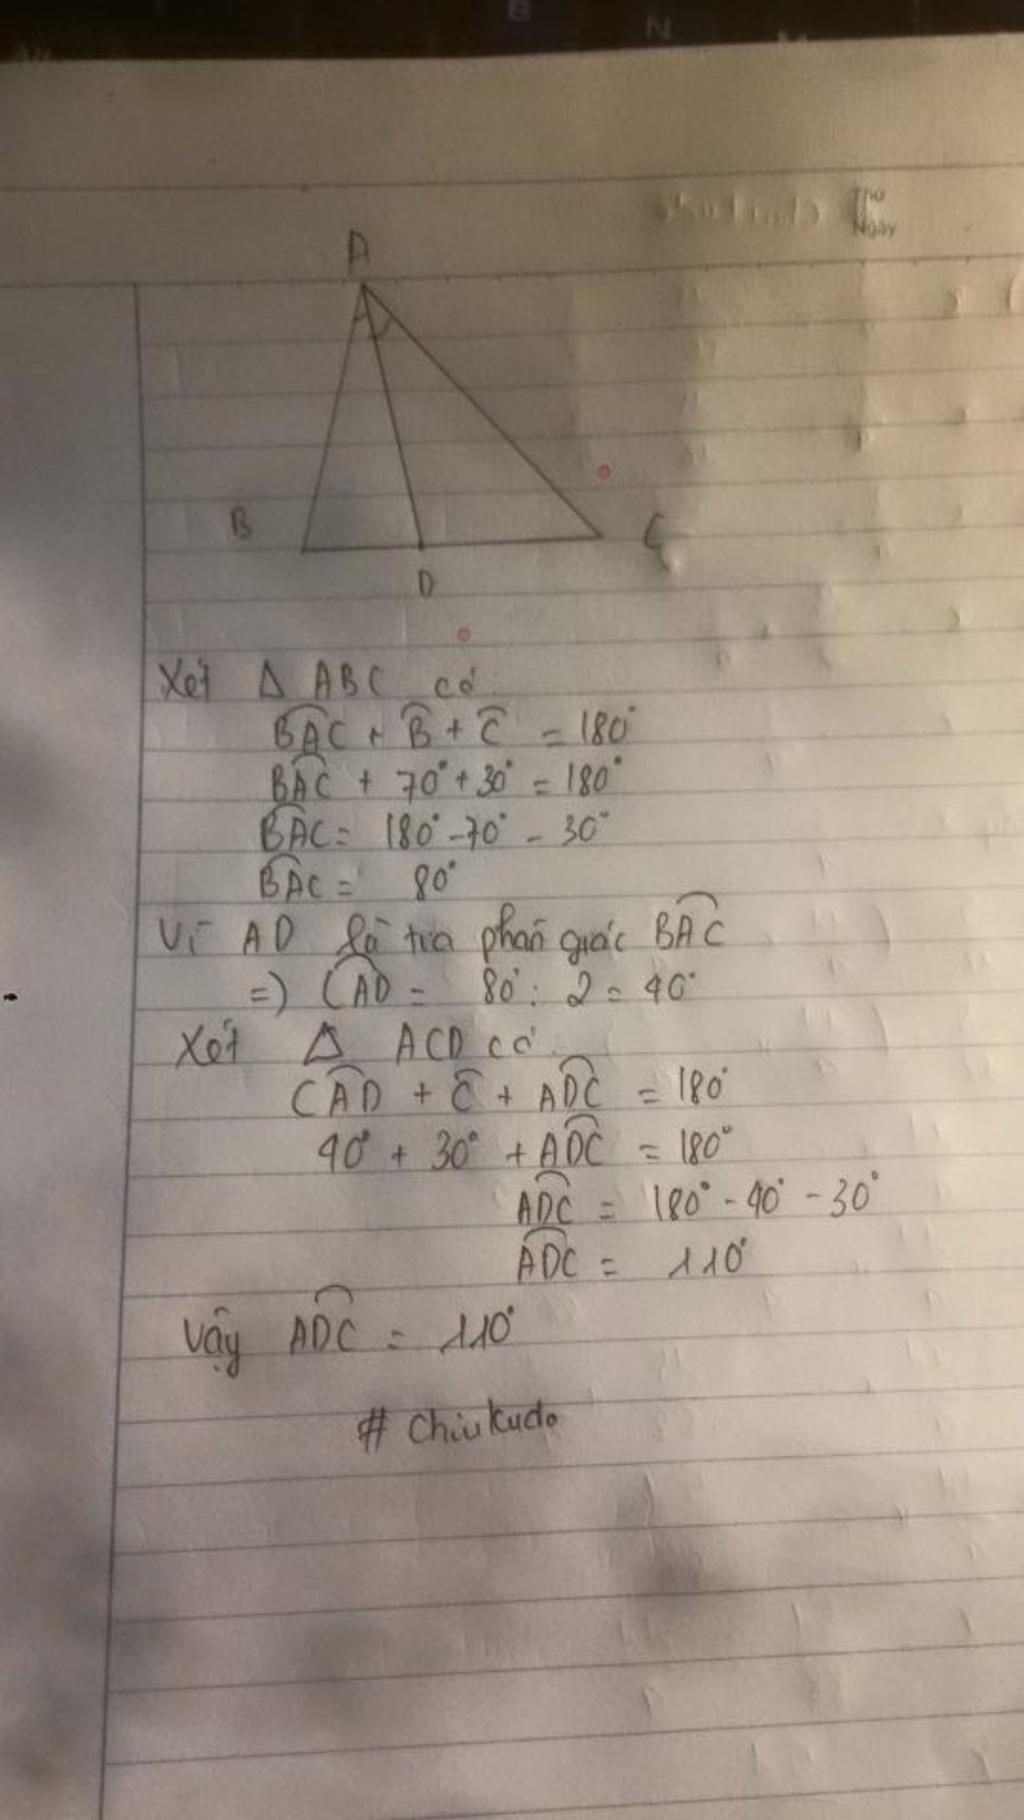 B
N
Thứ
Ngày
A
B
C
D
Xét Δ ABC có
BAC + B + C = 180°
BAC + 70° + 30° = 180°
BAC = 180° - 70° - 30°
BAC = 80°
Vì AD là tia phân giác BAC
=) CAD = 80° : 2 = 40°
Xét Δ ACD có
CAD + C + ADC = 180°
40° + 30° + ADC = 180°
ADC = 180° - 40° - 30°
ADC = 110°
Vậy ADC = 110°
# Chiukudo